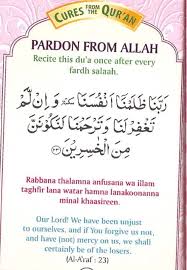 CURES FROM THE QUR'AN
PARDON FROM ALLAH
Recite this du'a once after every
fardh salaah.
رَبَّنَا ظَلَمْنَا اَنْفُسَنَا ۫ وَاِنْ لَّمْ
تَغْفِرْ لَنَا وَتَرْحَمْنَا لَنَكُوْنَنَّ
مِنَ الْخٰسِرِيْنَ ﴿٢٣﴾
Rabbana thalamna anfusana wa illam
taghfir lana watar hamna lanakoonanna
minal khaasireen.
Our Lord! We have been unjust
to ourselves, and if You forgive us not,
and have (not) mercy on us, we shall
certainly be of the losers.
(Al-A'raf : 23)